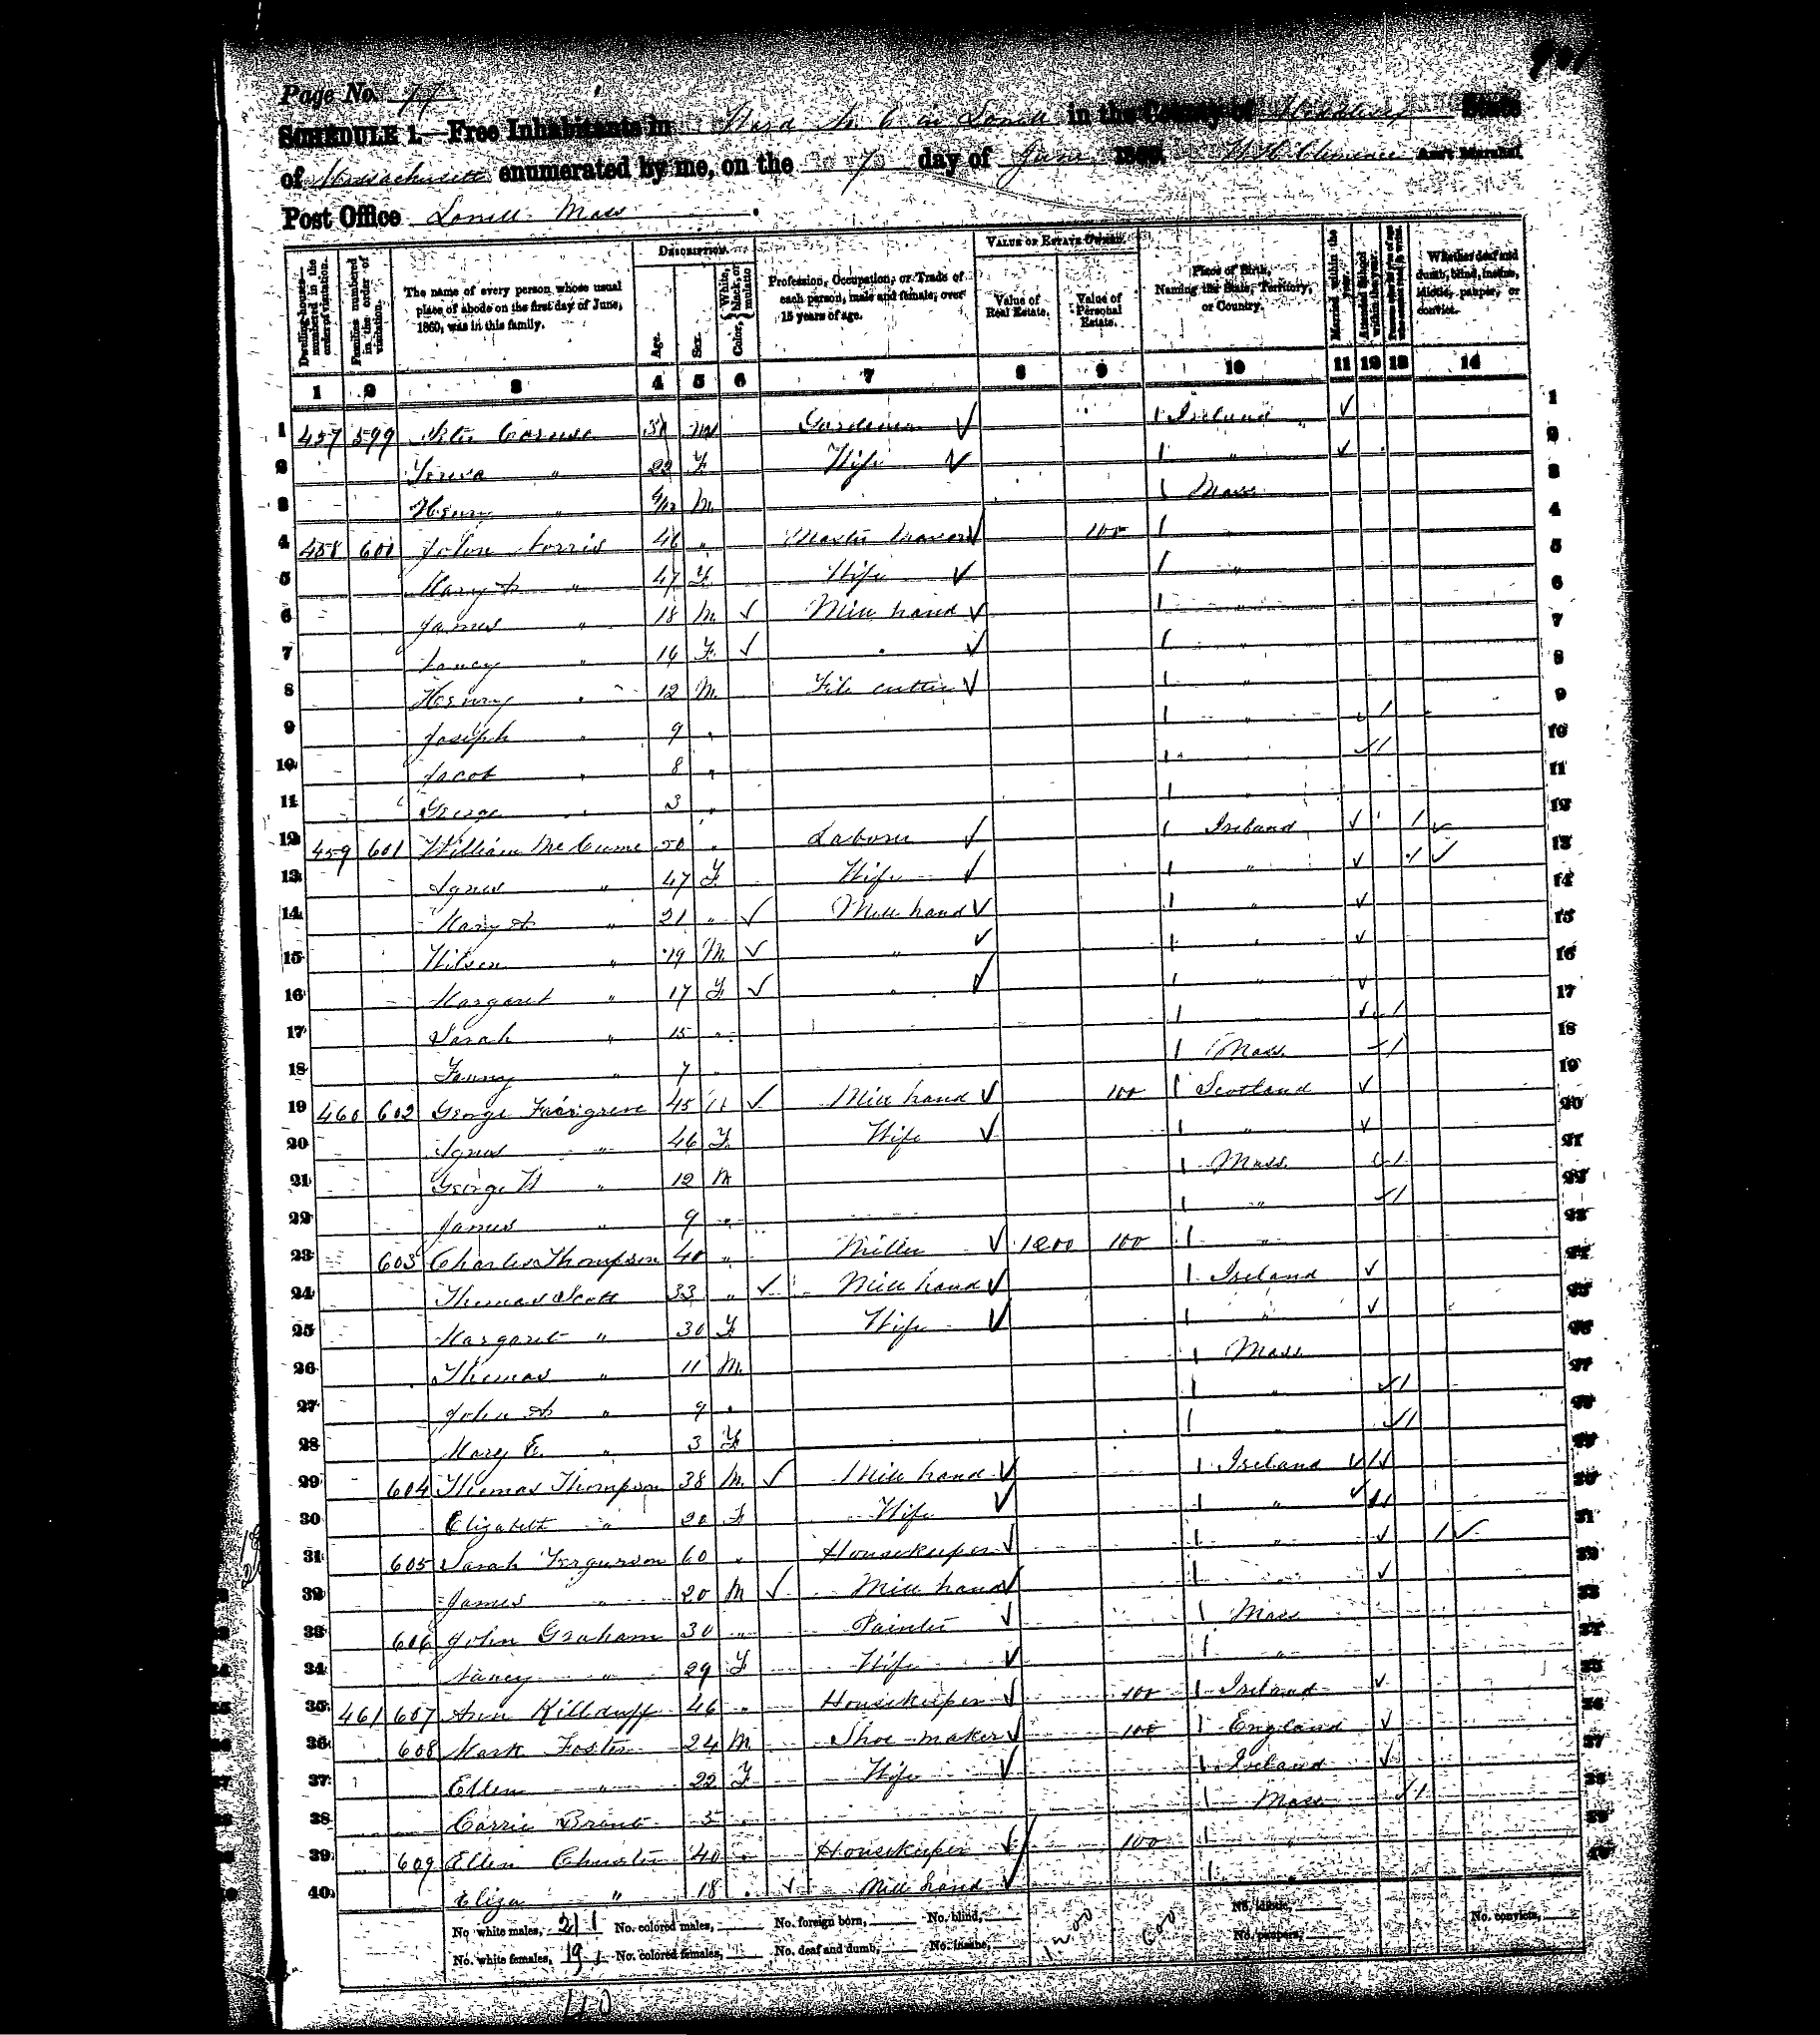 Page No. 77
SCHEDULE 1.—Free Inhabitants in Ward No. 6 in Lowell in the County of Middlesex State
of Massachusetts enumerated by me, on the day of June, 1860. Ass't Marshal
Post Office Lowell Mass.
Dwelling-houses—numbered in the order of visitation.
Families numbered in the order of visitation.
The name of every person whose usual place of abode on the first day of June, 1860, was in this family.
DESCRIPTION.
Age.
Sex.
Color, White, black, or mulatto
Profession, Occupation, or Trade of each person, male and female, over 15 years of age.
VALUE OF ESTATE OWNED.
Value of Real Estate.
Value of Personal Estate.
Place of Birth, Naming the State, Territory, or Country.
Married within the year.
Attended School within the year.
Whether deaf and dumb, blind, insane, idiotic, pauper, or convict.
1 2 3 4 5 6 7 8 9 10 11 12 13 14
1 457 599 M ✓ Ireland ✓ 1
2 " 22 F Wife ✓ " ✓ 2
3 Henry " M Mass 3
4 458 600 John 46 " ✓ 100 4
5 Mary A " 47 F Wife ✓ " 5
6 James " 18 M ✓ Mill hand ✓ " 6
7 " F ✓ " ✓ " 7
8 Henry " 12 M File cutter ✓ " 8
9 Joseph " 9 " " 1 9
10 Jacob " 8 " ✓ 1 10
11 George " 3 " " 11
12 459 601 William 50 " Laborer ✓ Ireland ✓ 1 ✓ 12
13 Agnes " 47 F Wife ✓ " ✓ 1 ✓ 13
14 Mary A " 21 " ✓ Mill hand ✓ " ✓ 14
15 Wilson " 19 M ✓ " ✓ " ✓ 15
16 Margaret " 17 F ✓ " ✓ " ✓ 16
17 Sarah " 15 " " ✓ 1 17
18 Fanny " 7 " Mass ✓ 1 18
19 460 602 George Fairgreve 45 M ✓ Mill hand ✓ 100 Scotland ✓ 19
20 Agnes " 46 F Wife ✓ " ✓ 20
21 George " 12 M Mass ✓ 1 21
22 James " 9 " " ✓ 1 22
23 603 Charles Thompson 40 " Miller ✓ 1200 100 " 23
24 Thomas Scott 33 " ✓ Mill hand ✓ Ireland ✓ 24
25 Margaret " 30 F Wife ✓ " ✓ 25
26 Thomas " 11 M Mass 26
27 John A " 9 " " ✓ 1 27
28 Mary E. " 3 F " ✓ 1 28
29 604 Thomas Thompson 38 M ✓ Mill hand ✓ Ireland 29
30 Elizabeth " 20 F Wife ✓ " 30
31 605 Sarah Ferguson 60 " Housekeeper ✓ " ✓ 1 ✓ 31
32 James " 20 M ✓ Mill hand ✓ " ✓ 32
33 606 John Graham 30 " Painter ✓ Mass 33
34 Nancy " 29 F Wife ✓ " 34
35 461 607 Ann Kilduff 46 " Housekeeper ✓ 100 Ireland ✓ 35
36 608 Mark Foster 24 M Shoe maker ✓ 100 England ✓ 36
37 Ellen " 22 F Wife ✓ Ireland ✓ 37
38 Carrie 5 " Mass ✓ 1 38
39 609 Ellen 40 " Housekeeper ✓ 100 " 39
40 Eliza " 18 " ✓ Mill hand ✓ " 40
No white males, 21 No. colored males, No. foreign born, No. blind, 1200 600 No. idiotic, No. convicts,
No. white females, 19 No. colored females, No. deaf and dumb, No. insane, No. paupers,
40